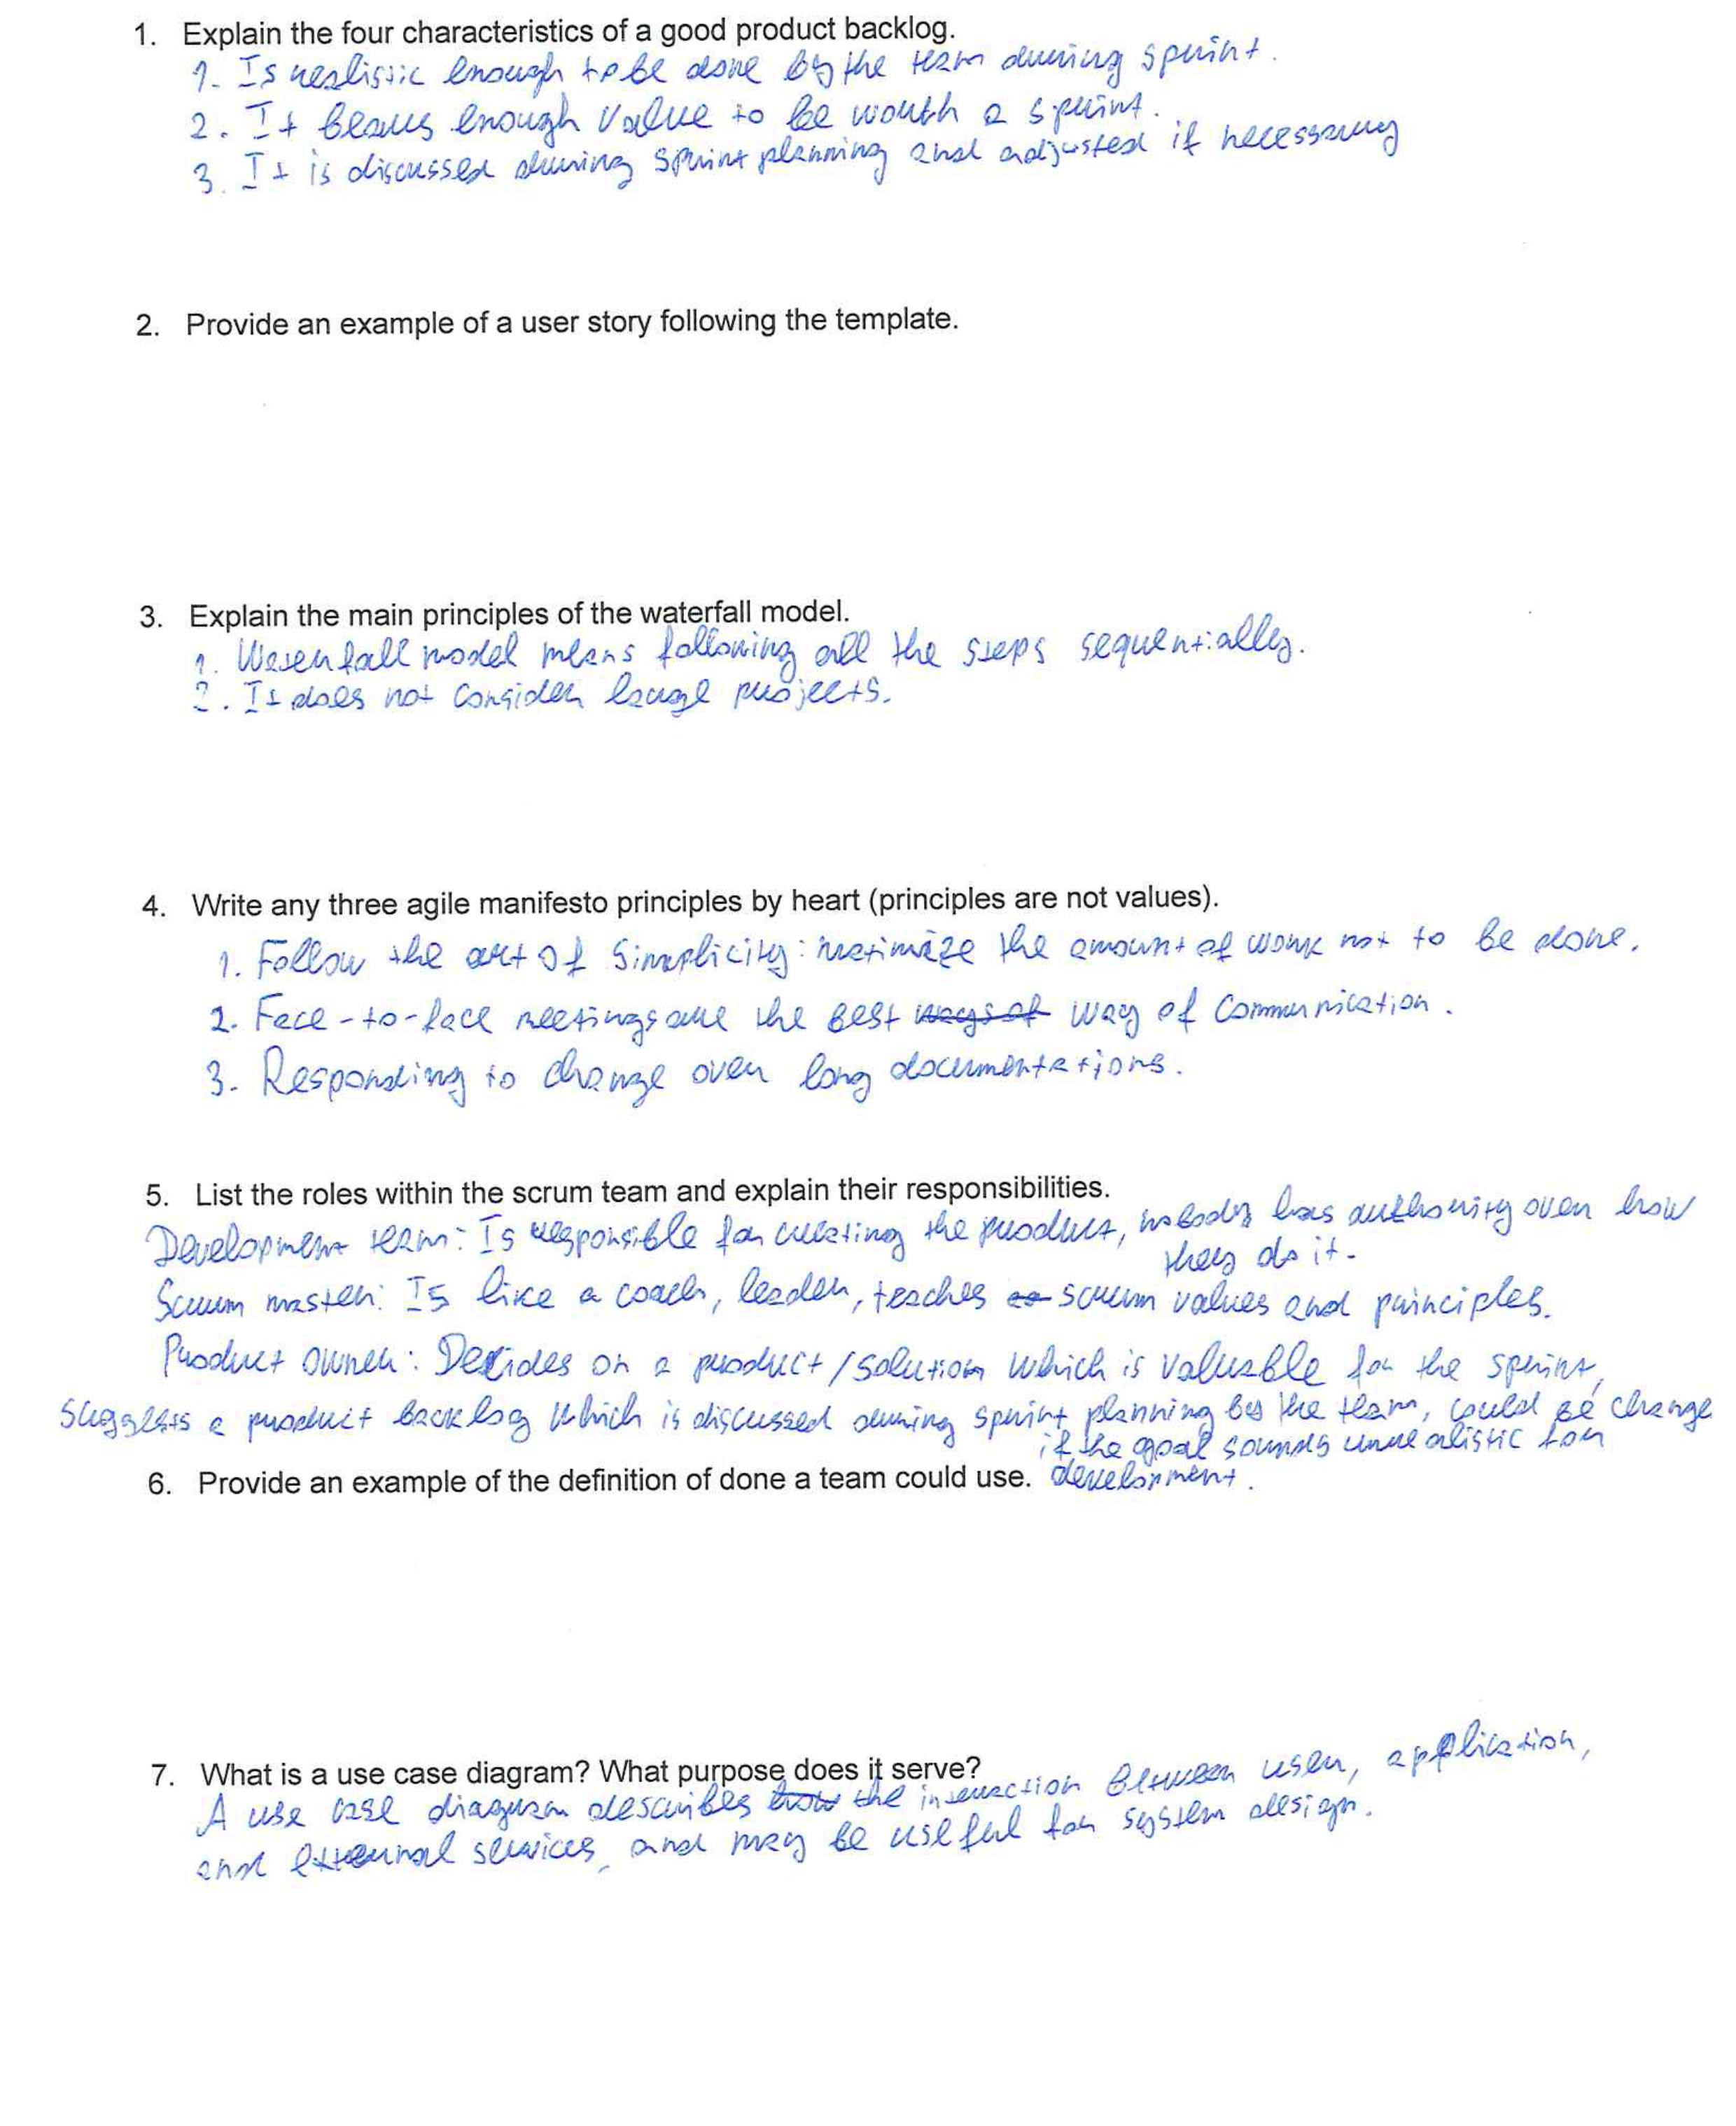 1. Explain the four characteristics of a good product backlog.
1. Is realistic enough to be done by the team during sprint.
2. It bears enough value to be worth a sprint.
3. It is discussed during sprint planning and adjusted if necessary
2. Provide an example of a user story following the template.
3. Explain the main principles of the waterfall model.
1. Waterfall model means following all the steps sequentially.
2. It does not consider large projects.
4. Write any three agile manifesto principles by heart (principles are not values).
1. Follow the art of simplicity: maximize the amount of work not to be done.
2. Face-to-face meetings are the best ways of way of communication.
3. Responding to change over long documentations.
5. List the roles within the scrum team and explain their responsibilities.
Development team: Is responsible for creating the product, nobody has authority over how
they do it.
Scrum master: Is like a coach, leader, teaches scrum values and principles.
Product owner: Decides on a product/solution which is valuable for the sprint,
suggests a product backlog which is discussed during sprint planning by the team, could be change
if the goal sounds unrealistic for
development.
6. Provide an example of the definition of done a team could use.
7. What is a use case diagram? What purpose does it serve?
A use case diagram describes how the interaction between user, application,
and external services, and may be useful for system design.